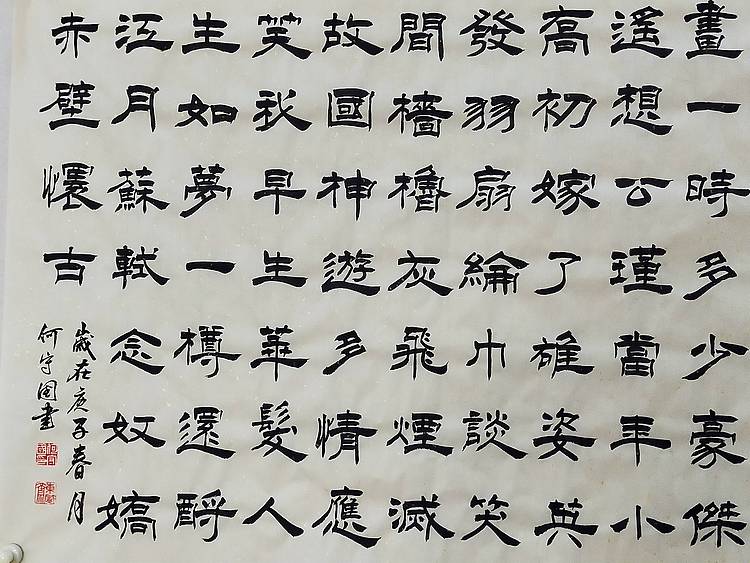 畫一時多少豪傑
遙想公瑾當年小
喬初嫁了雄姿英
發羽扇綸巾談笑
間檣櫓灰飛煙滅
故國神遊多情應
笑我早生華髮人
生如夢一樽還酹
江月蘇軾念奴嬌
赤壁懷古
歲在庚子春月
何守書